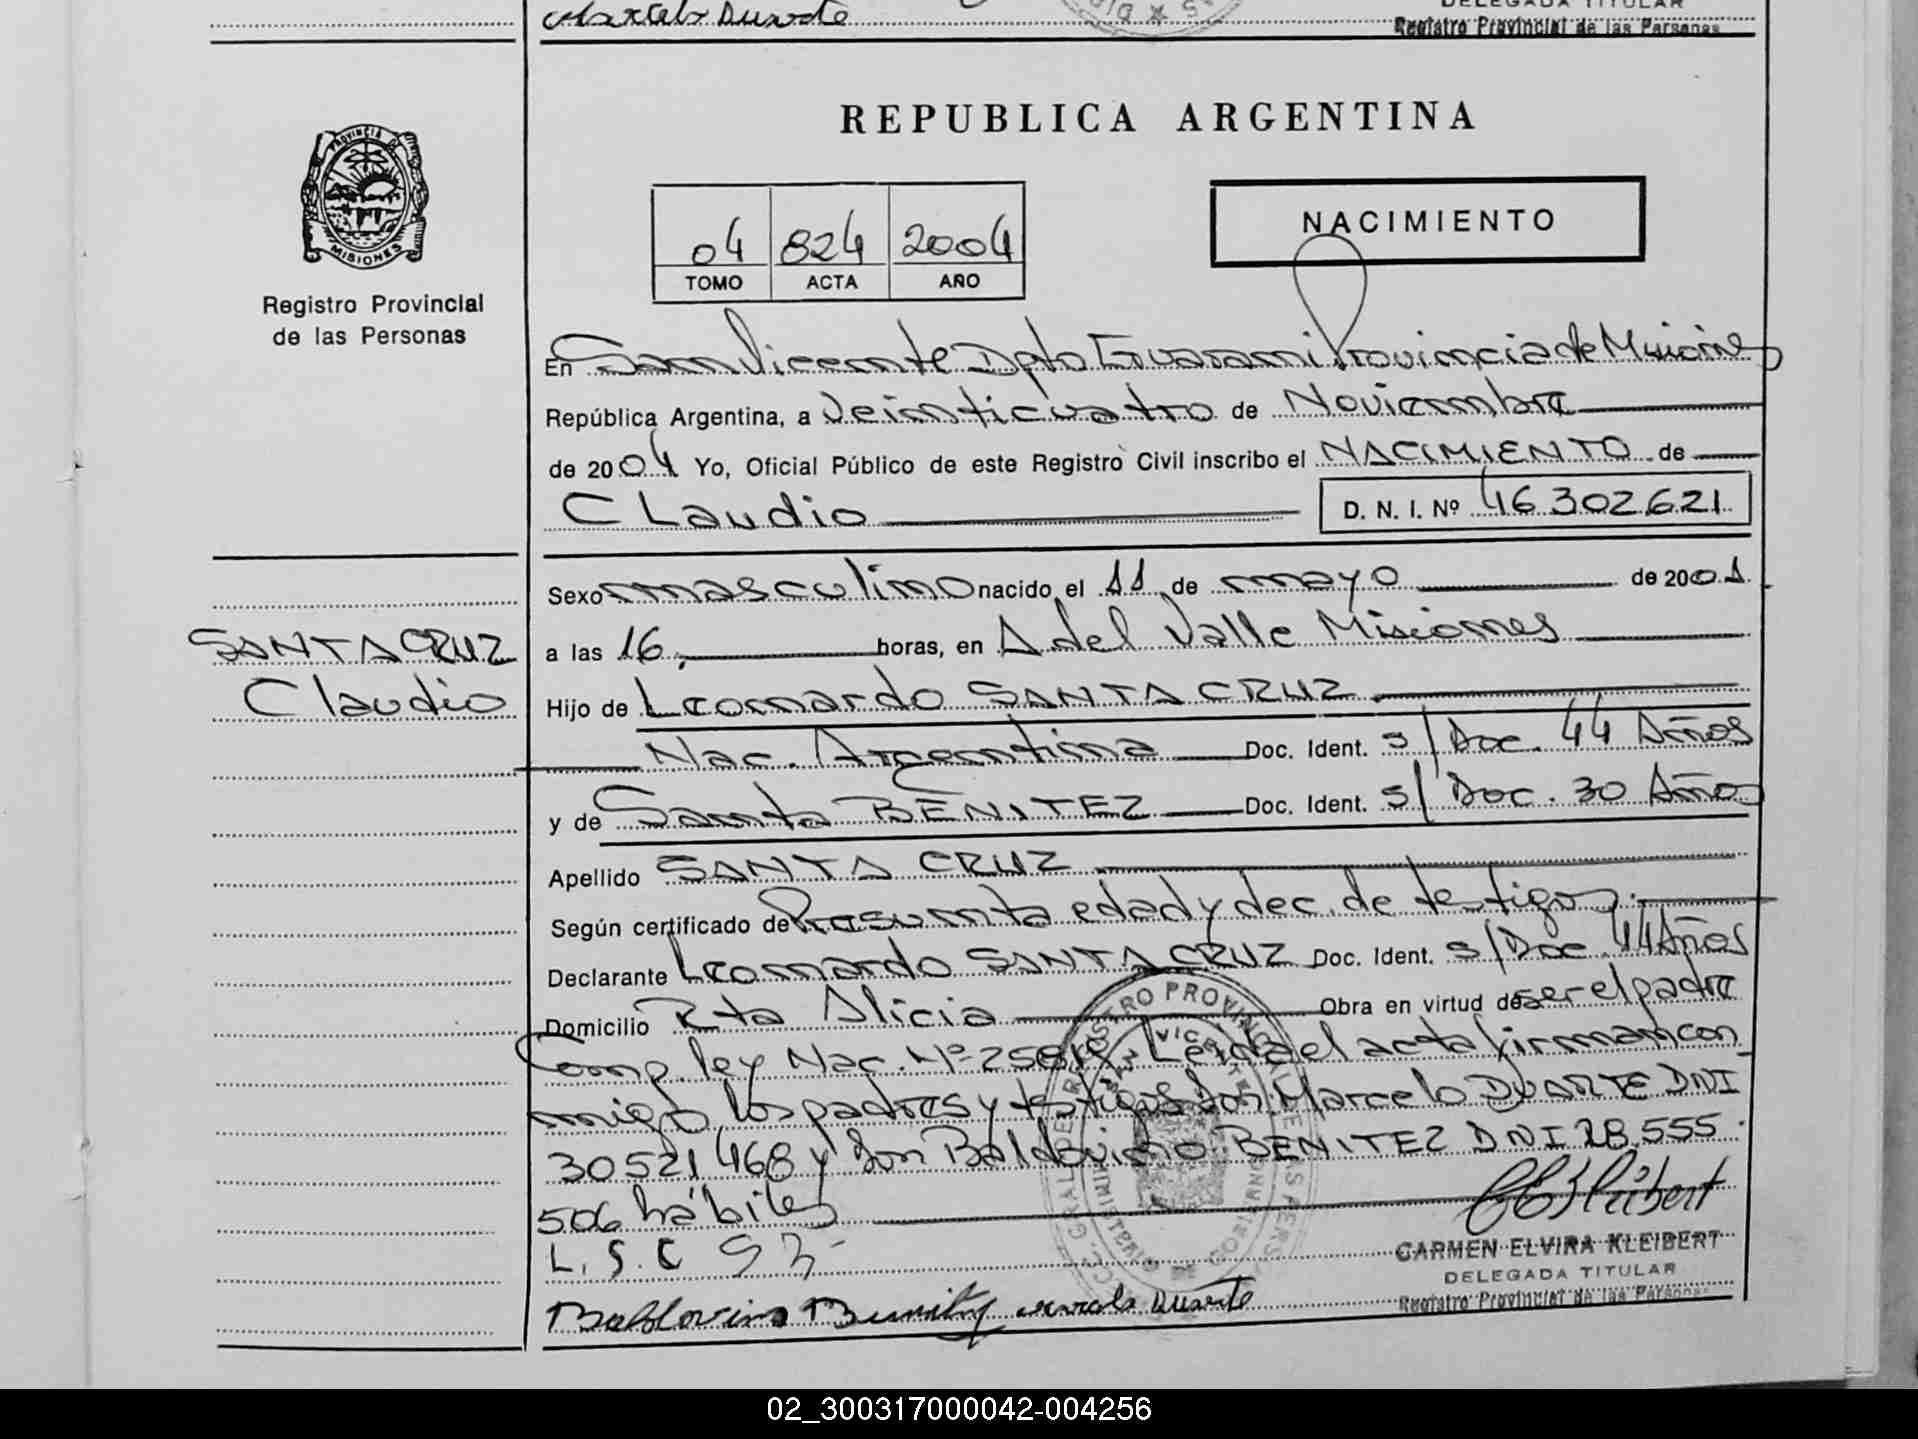 Marcelo Duarte
DELEGADA TITULAR
Registro Provincial de las Personas
REPUBLICA ARGENTINA
PROVINCIA DE
MISIONES
Registro Provincial
de las Personas
04 824 2004
TOMO ACTA AÑO
NACIMIENTO
En San Vicente Dpto Guarani Provincia de Misiones
República Argentina, a Veinticuatro de Noviembre
de 2004 Yo, Oficial Público de este Registro Civil inscribo el NACIMIENTO de
Claudio D. N. I. Nº 46302621
Sexo masculino nacido el 11 de mayo de 2001
a las 16, horas, en A del Valle Misiones
SANTA CRUZ
Claudio
Hijo de Leonardo SANTA CRUZ
Nac. Argentina Doc. Ident. s/Doc. 44 Años
y de Santa BENITEZ Doc. Ident. s/Doc. 30 Años
Apellido SANTA CRUZ
Según certificado de Presunta edad y dec. de testigos.
Declarante Leonardo SANTA CRUZ Doc. Ident. s/Doc 44 Años
Domicilio Rta Alicia Obra en virtud de ser el padre
Comp. ley Nac. Nº 25819. Leida el acta firman con
migo los padres y testigos Don Marcelo DUARTE DNI
30521468 y Don Baldovino BENITEZ DNI 28.555.
506 hábiles
L. S. C
CARMEN ELVIRA KLEIBERT
DELEGADA TITULAR
Registro Provincial de las Personas
Baldovino Benitez Marcelo Duarte
02_300317000042-004256